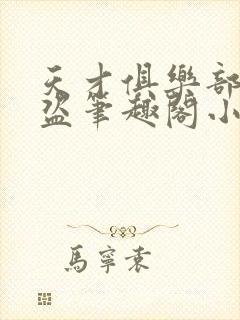 天才俱樂部
盜筆趣閣小
馬寧袁